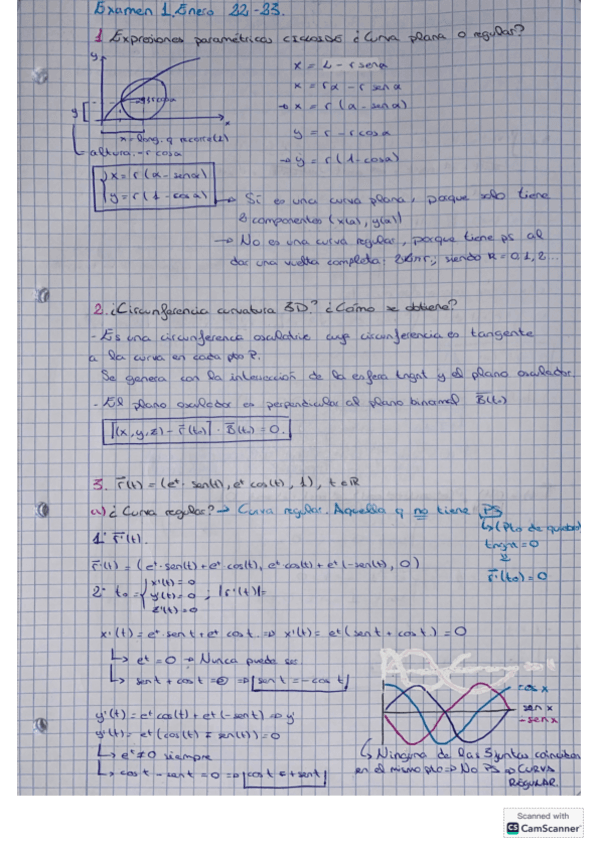 Examen 1. Enero 22-23.
1. Expresiones paramétricas CICLOIDE ¿Curva plana o regular?
y
x = L - r senα
x = rα - r senα
→ x = r(α - senα)
x
y
x = long. q recorre (L)
y = r - r cosα
altura: -r cosα
→ y = r(1 - cosα)
x = r(α - senα)
y = r(1 - cosα)
→ Sí es una curva plana, porque solo tiene
2 componentes (x(α), y(α))
→ No es una curva regular, porque tiene ps al
dar una vuelta completa: siendo K = 0, 1, 2...
2. ¿Circunferencia curvatura 3D? ¿Cómo se obtiene?
- Es una circunferencia osculatriz cuya circunferencia es tangente
a la curva en cada pto P.
Se genera con la intersección de la esfera tngnt y el plano osculador.
- El plano osculador es perpendicular al plano binormal B(t₀)
[(x, y, z) - r(t₀)] · B(t₀) = 0.
3. r(t) = (eᵗ · sen(t), eᵗ cos(t), 1), t ∈ ℝ
a) ¿Curva regular? → Curva regular. Aquella q no tiene PS
↳ (Pto de quiebro)
1º r'(t).
tngnt = 0
r'(t) = (eᵗ · sen(t) + eᵗ cos(t), eᵗ cos(t) + eᵗ (-sen(t)), 0)
r'(t₀) = 0
2º t₀ = { x'(t) = 0
y'(t) = 0 ; |r'(t)| =
z'(t) = 0
x'(t) = eᵗ · sen t + eᵗ cos t ⇒ x'(t) = eᵗ (sen t + cos t) = 0
↳ eᵗ = 0 → Nunca puede ser
↳ sen t + cos t = 0 ⇒ sen t = - cos t
cos x
sen x
- sen x
y'(t) = eᵗ cos(t) + eᵗ (-sen t) ⇒ y'
y'(t) = eᵗ (cos(t) - sen(t)) = 0
↳ eᵗ ≠ 0 siempre
↳ cos t - sen t = 0 ⇒ cos t = sen t
↳ Ninguna de las 3 juntas coinciden
en el mismo pto ⇒ No PS ⇒ CURVA
REGULAR.
Scanned with
CS CamScanner